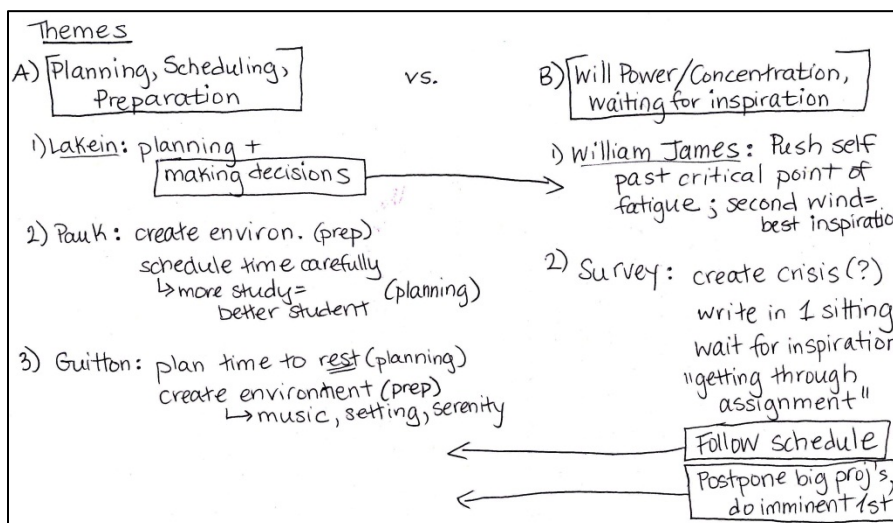 Themes
A) Planning, Scheduling,
Preparation
vs.
B) Will Power/Concentration,
waiting for inspiration
1) Lakein: planning +
making decisions
2) Pauk: create environ. (prep)
schedule time carefully
↳ more study =
better student (planning)
3) Guitton: plan time to rest (planning)
create environment (prep)
↳ music, setting, serenity
1) William James: Push self
past critical point of
fatigue; second wind=
best inspiratio
2) Survey: create crisis(?)
write in 1 sitting
wait for inspiration
"getting through
assignment"
Follow schedule
Postpone big proj's,
do imminent 1st